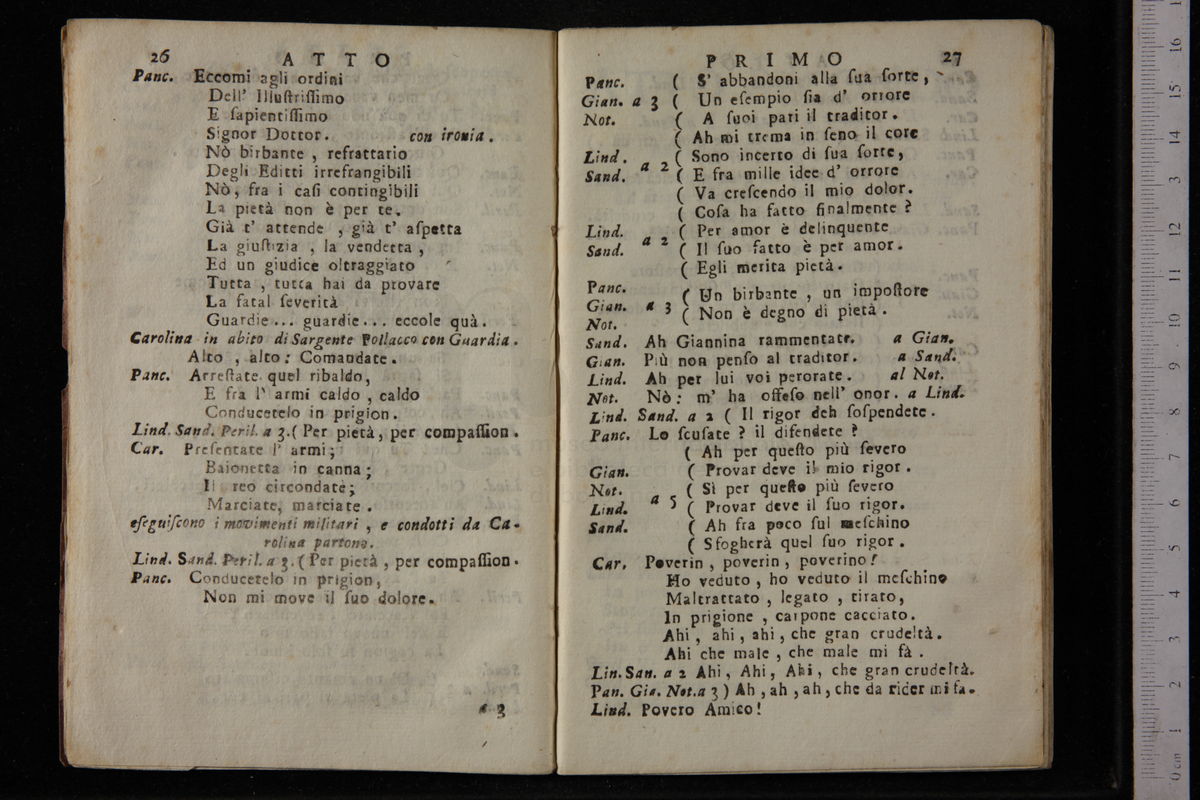 26 ATTO
Panc. Eccomi agli ordini
Dell' Illuſtriſſimo
E ſapientiſſimo
Signor Dottor. con ironia.
Nò birbante, refrattario
Degli Editti irrefrangibili
Nò, fra i caſi contingibili
La pietà non è per te.
Già t' attende, già t' aſpetta
La giuſtizia, la vendetta,
Ed un giudice oltraggiato
Tutta, tutta hai da provare
La fatal ſeverità
Guardie... guardie... eccole quà.
Carolina in abito di Sargente Pollacco con Guardia.
Alto, alto: Comandate.
Panc. Arreſtate quel ribaldo,
E fra l' armi caldo, caldo
Conducetelo in prigion.
Lind. Sand. Peril. a 3. ( Per pietà, per compaſſion.
Car. Preſentate l' armi;
Baionetta in canna;
Il reo circondate;
Marciate, marciate.
eſeguiſcono i movimenti militari, e condotti da Ca-
rolina partono.
Lind. Sand. Peril. a 3. ( Per pietà, per compaſſion.
Panc. Conducetelo in prigion,
Non mi move il ſuo dolore.
a 3
PRIMO 27
Panc. ( S' abbandoni alla ſua ſorte,
Gian. a 3 ( Un eſempio ſia d' orrore
Not. ( A ſuoi pari il traditor.
( Ah mi trema in ſeno il core
Lind. a 2 ( Sono incerto di ſua ſorte,
Sand. ( E fra mille idee d' orrore
( Va creſcendo il mio dolor.
( Coſa ha fatto finalmente?
Lind. a 2 ( Per amor è delinquente
Sand. ( Il ſuo fatto è per amor.
( Egli merita pietà.
Panc. ( Un birbante, un impoſtore
Gian. a 3 ( Non è degno di pietà.
Not.
Sand. Ah Giannina rammentate. a Gian.
Gian. Più non penſo al traditor. a Sand.
Lind. Ah per lui voi perorate. al Not.
Not. Nò: m' ha offeſo nell' onor. a Lind.
Lind. Sand. a 2 ( Il rigor deh ſoſpendete.
Panc. Lo ſcuſate? il difendete?
( Ah per queſto più ſevero
Gian. ( Provar deve il mio rigor.
Not. ( Sì per queſto più ſevero
Lind. a 5 ( Provar deve il ſuo rigor.
Sand. ( Ah fra poco ſul meſchino
( Sfogherà quel ſuo rigor.
Car. Poverin, poverin, poverino!
Ho veduto, ho veduto il meſchino
Maltrattato, legato, tirato,
In prigione, carpone cacciato.
Ahi, ahi, ahi, che gran crudeltà.
Ahi che male, che male mi fà.
Lin. San. a 2 Ahi, Ahi, Ahi, che gran crudeltà.
Pan. Gia. Not. a 3 ) Ah, ah, ah, che da rider mi fa.
Lind. Povero Amico!